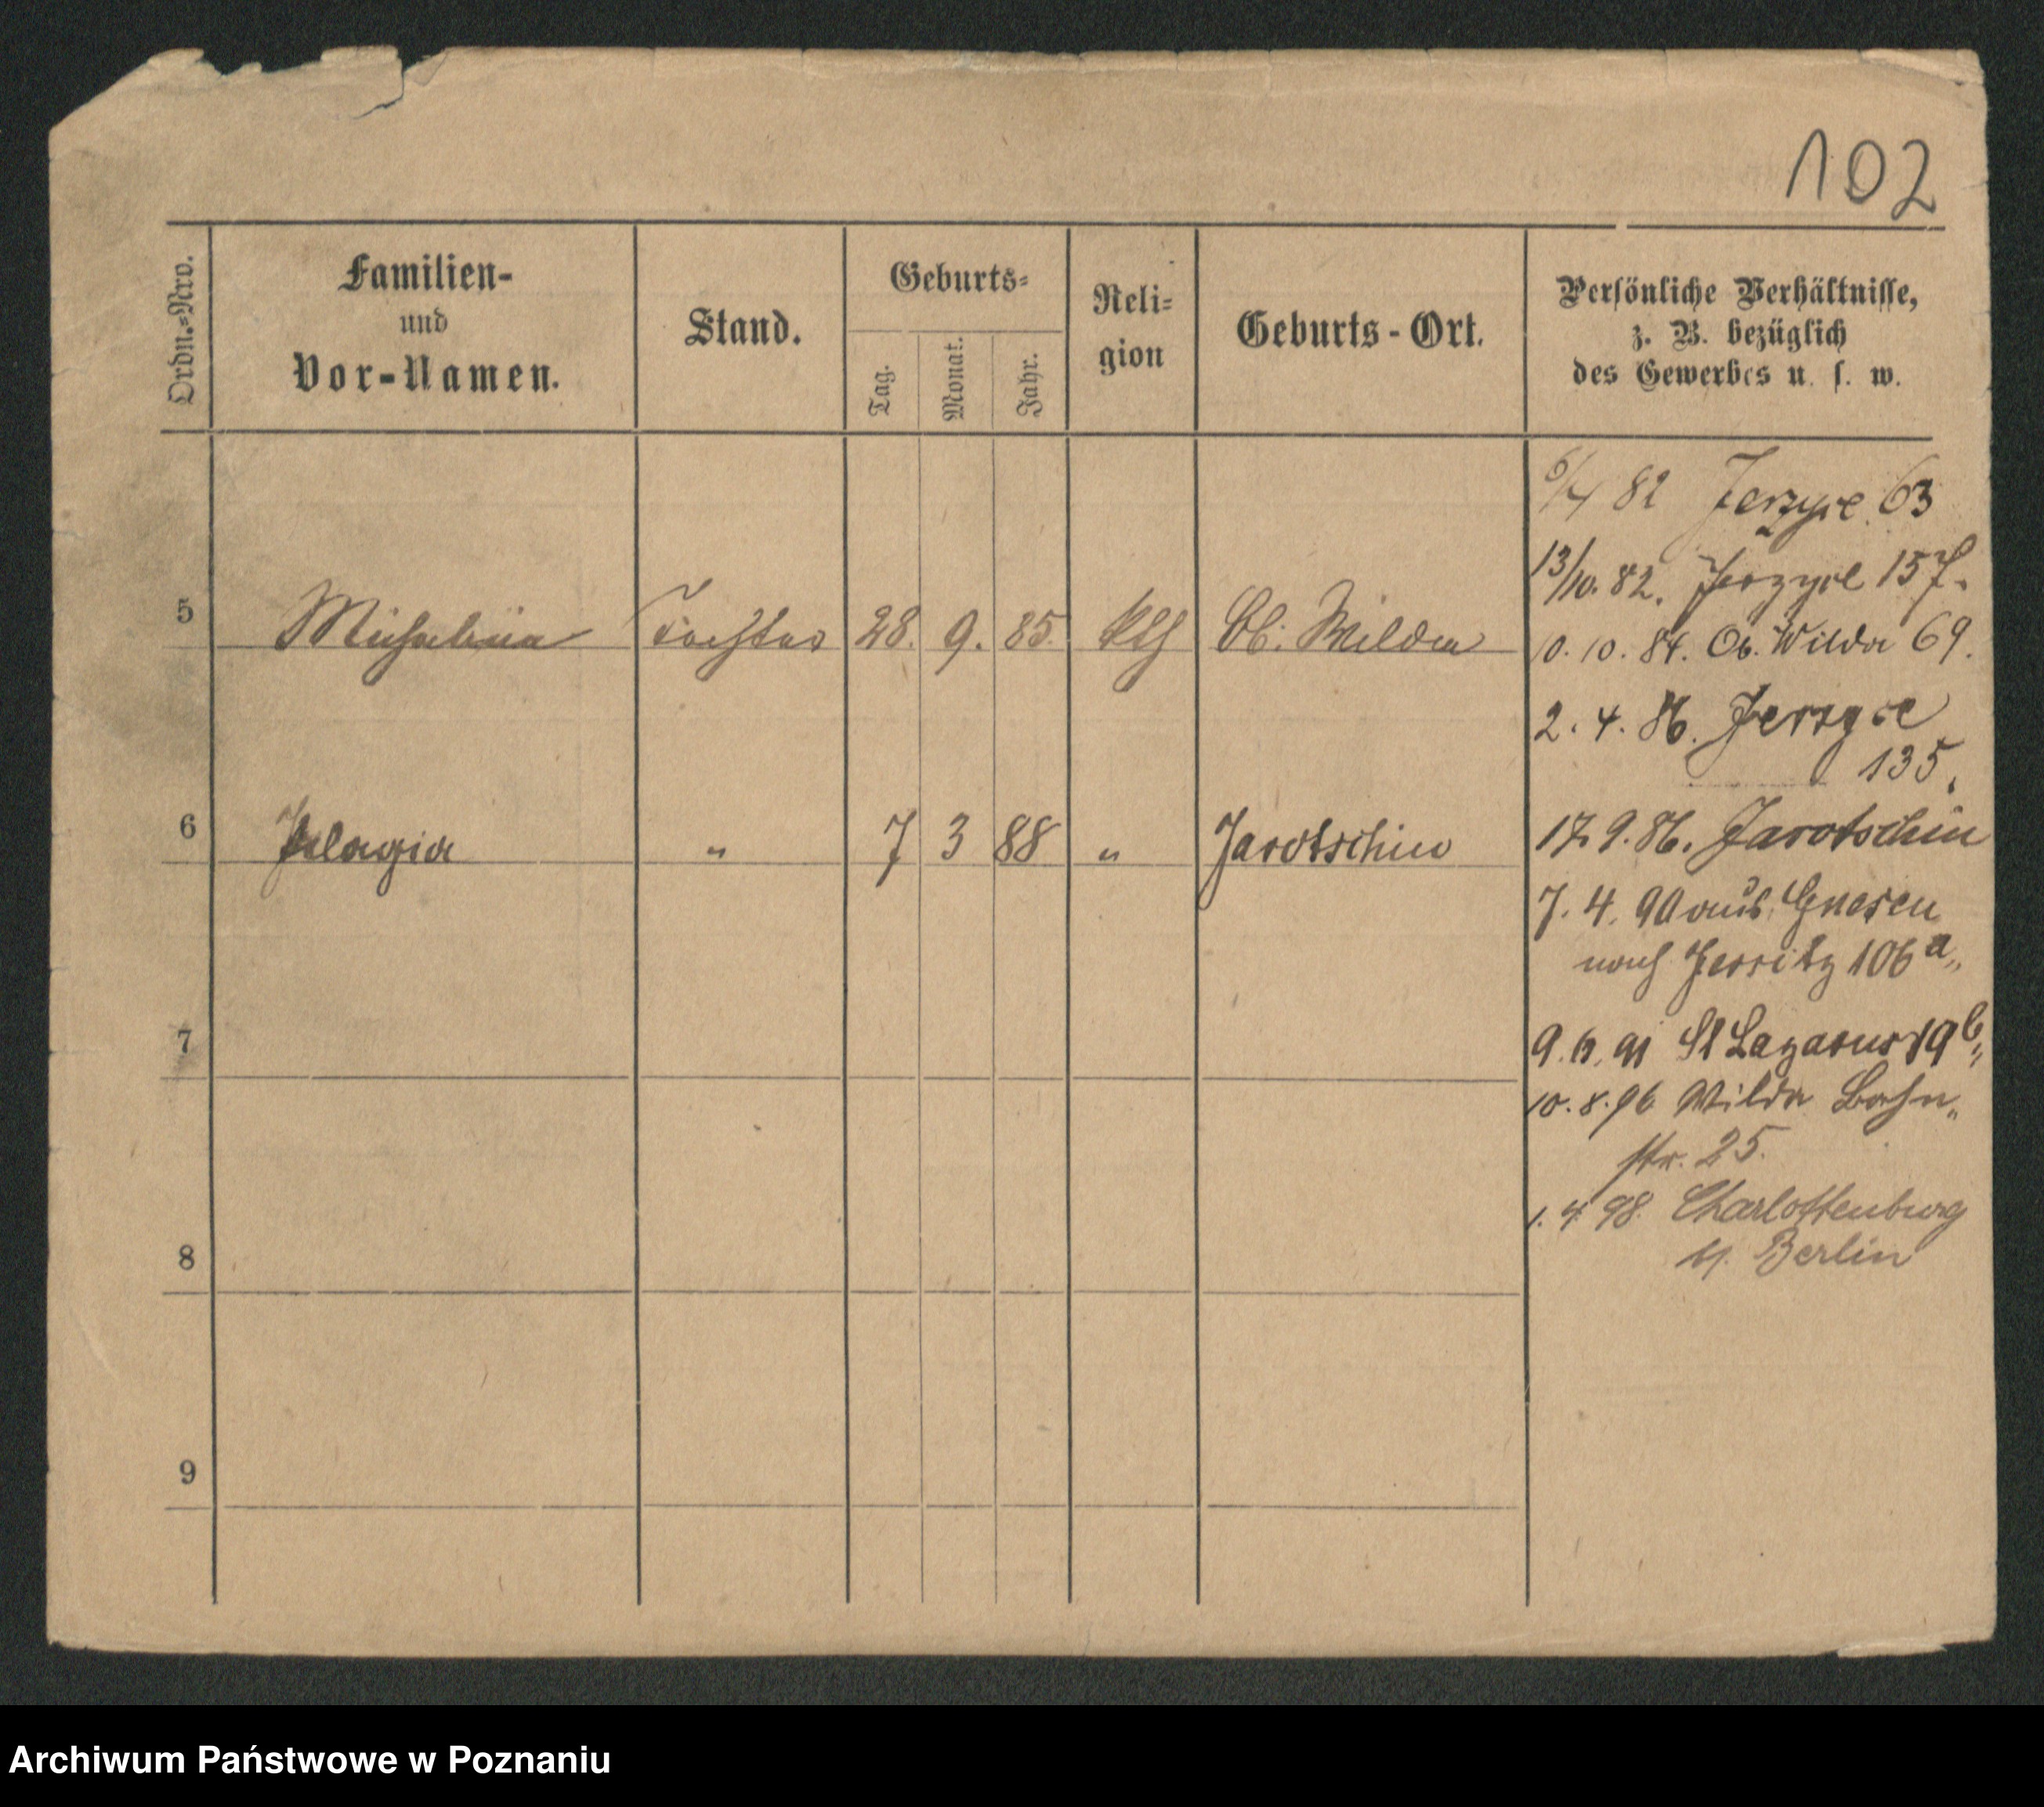 102
Ordn.-Nro.
Familien-
und
Vor-Namen.
Stand.
Geburts-
Tag.
Monat.
Jahr.
Reli-
gion
Geburts-Ort.
Persönliche Verhältnisse,
z. B. bezüglich
des Gewerbes u. s. w.
5 Michalina Tochter 28. 9. 85. kth Ob. Wilda
6 Pelagia " 7 3 88 " Jarotschin
7
8
9
6/4 82 Jerzyce 63
13/10. 82. Jerzyce 157.
10. 10. 84. Ob. Wilda 69.
2. 4. 86. Jerzyce
135.
17. 9. 86. Jarotschin
7. 4. 90 aus Gnesen
nach Jersitz 106a
9. 6. 91 St Lazarus 19b
10. 8. 96 Wilda Bahn-
str. 25.
1. 4. 98. Charlottenburg
b/. Berlin
Archiwum Państwowe w Poznaniu